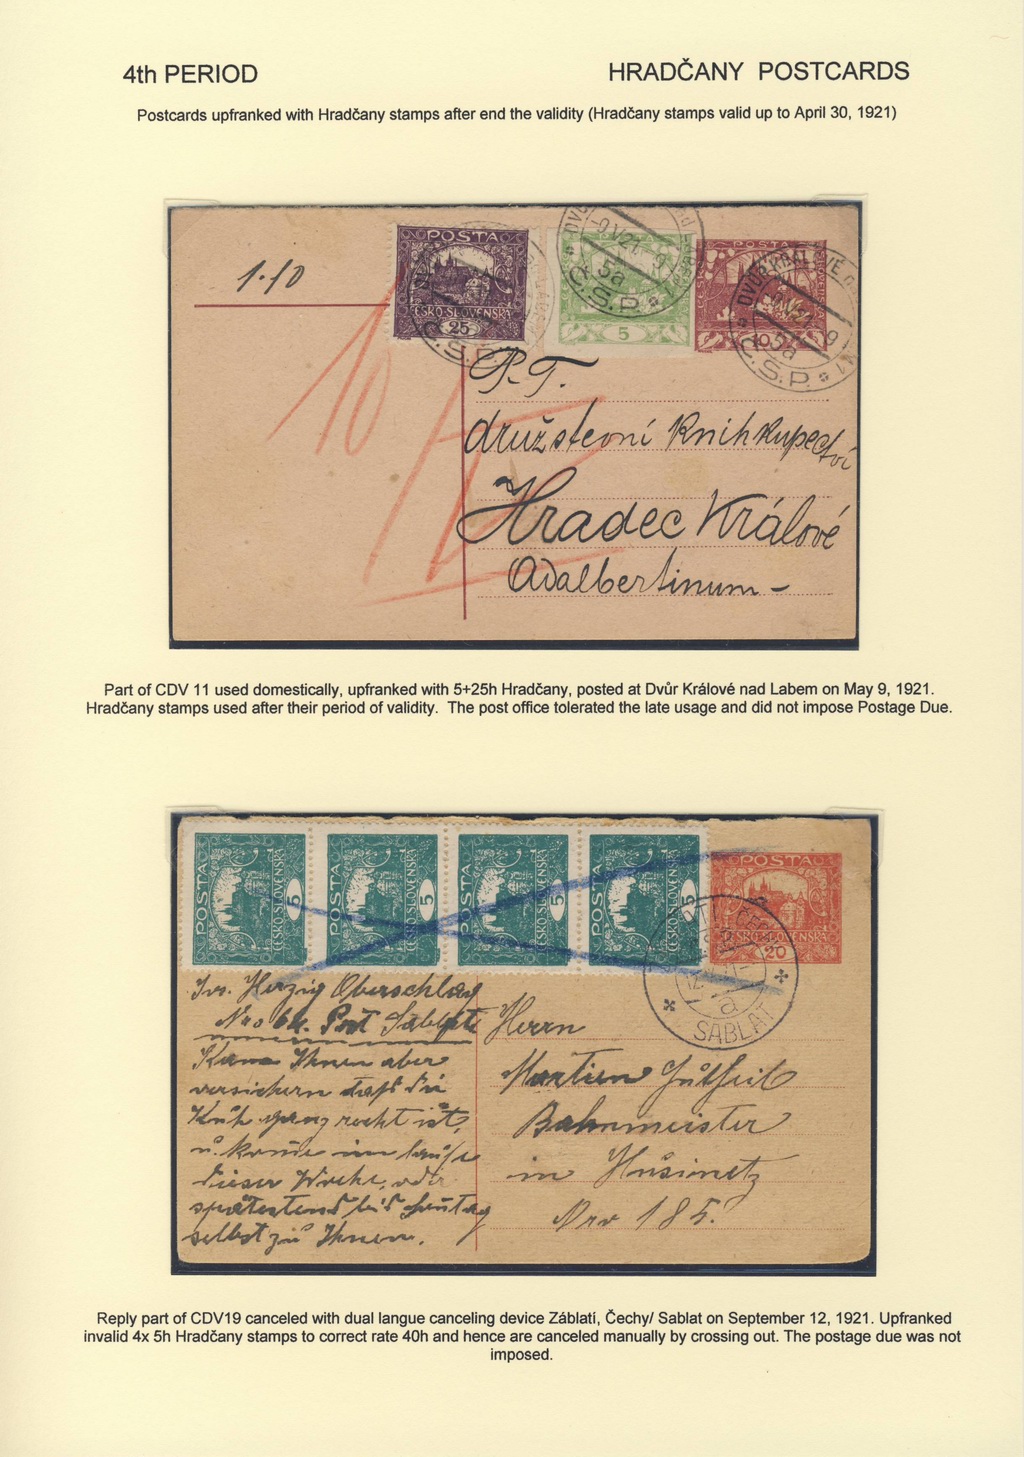 4th PERIOD
HRADČANY POSTCARDS
Postcards upfranked with Hradčany stamps after end the validity (Hradčany stamps valid up to April 30, 1921)
1·10
POSTA
ČESKO-SLOVENSKÁ
25
5
POSTA
10
DVŮR KRÁLOVÉ
-9.V.21-9
5a
Č.S.P.
10
P.T.
družstevní Knihkupectví
Hradec Králové
Adalbertinum -
Part of CDV 11 used domestically, upfranked with 5+25h Hradčany, posted at Dvůr Králové nad Labem on May 9, 1921.
Hradčany stamps used after their period of validity. The post office tolerated the late usage and did not impose Postage Due.
POSTA ČESKO-SLOVENSKÁ 5
POSTA ČESKO-SLOVENSKÁ 5
POSTA ČESKO-SLOVENSKÁ 5
POSTA ČESKO-SLOVENSKÁ 5
POSTA
ČESKO-SLOVENSKÁ
20
a
SABLAT
Oberschlag
Post Sablat
Kann Ihnen aber
versichern daß die
Kuh ganz recht ist,
u. komme im laufe
dieser Woche, oder
spätestens bis
selbst zu Ihnen.
Herrn
Martin
Bahnmeister
in Husinetz
Nro 185.
Reply part of CDV19 canceled with dual langue canceling device Záblatí, Čechy/ Sablat on September 12, 1921. Upfranked
invalid 4x 5h Hradčany stamps to correct rate 40h and hence are canceled manually by crossing out. The postage due was not
imposed.